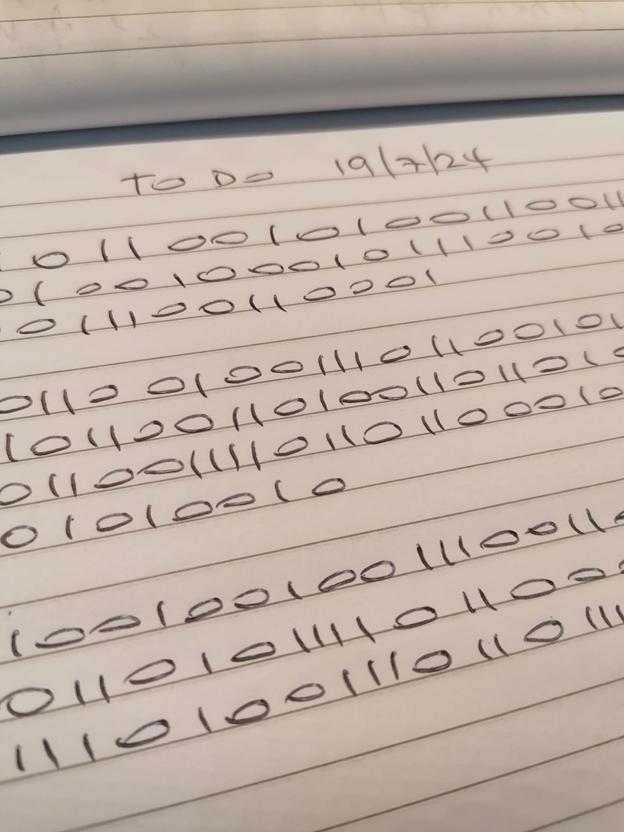 To Do 19/7/24
1 0 1 1 0 0 1 0 1 0 0 1 1 0 0 1 1
0 1 0 0 1 0 0 0 1 0 1 1 1 0 0 1 0
0 0 1 1 1 0 0 1 1 0 0 0 1
0 1 1 0 0 1 0 0 1 1 1 0 1 1 0 0 1 0 1
1 0 1 1 0 0 1 1 0 1 0 0 1 1 0 1 1 0 1 0
0 1 1 0 0 1 1 1 1 0 1 1 0 1 1 0 0 0 1 0
0 1 0 1 0 0 1 0
1 0 0 1 0 0 1 0 0 1 1 1 0 0 1 1 0
0 1 1 0 1 0 1 1 1 1 0 1 1 0 0 0
1 1 1 0 1 0 0 1 1 1 0 1 1 0 1 1 1